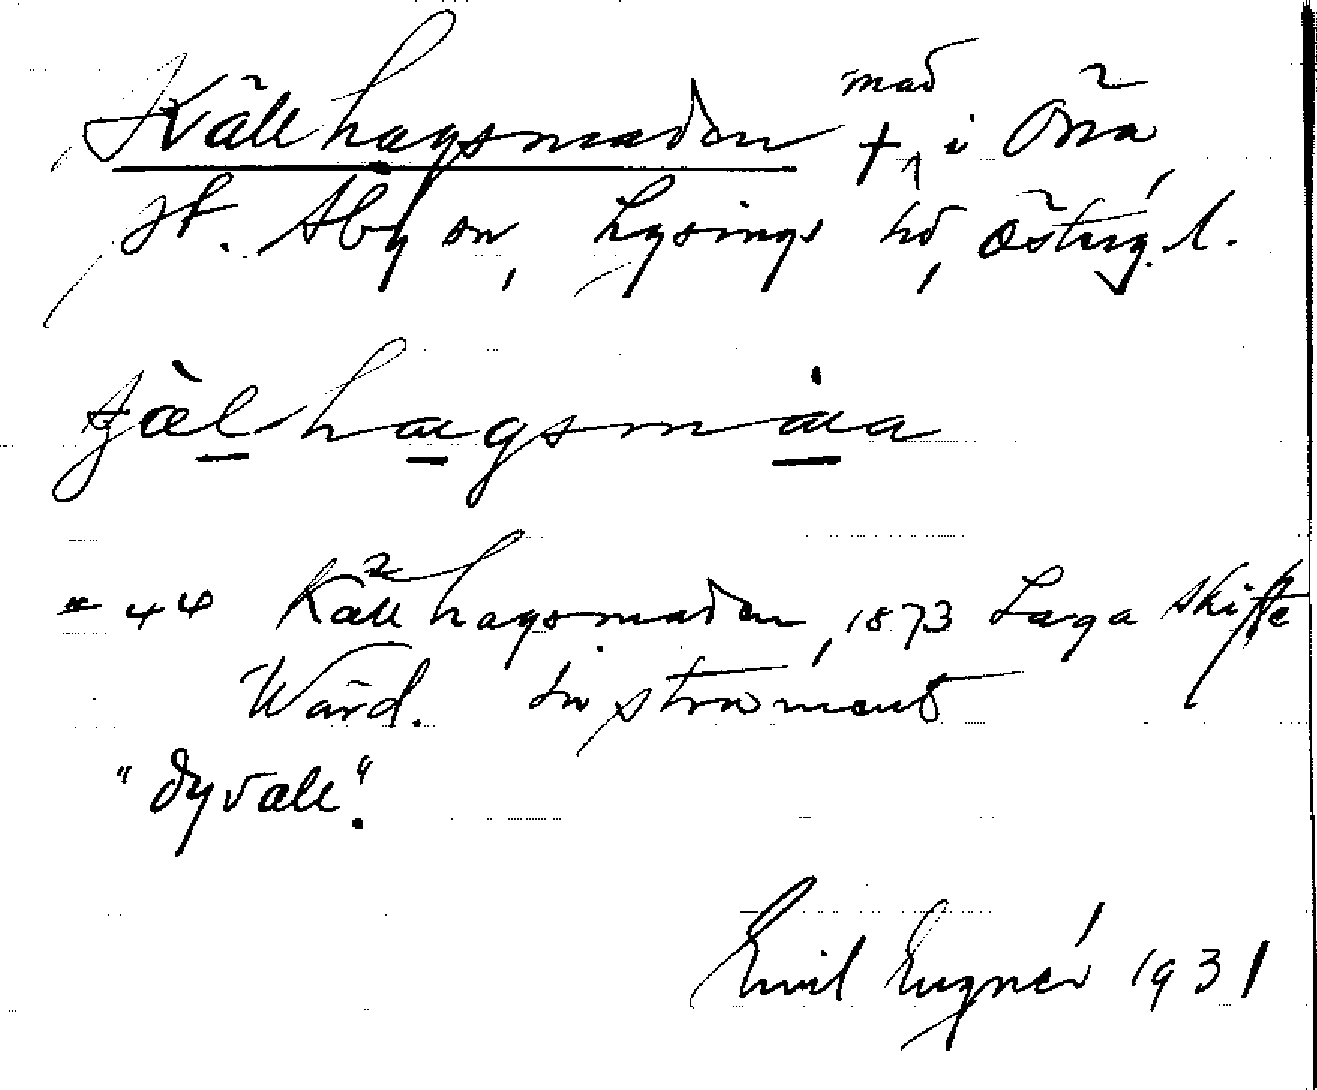 Källhagsmaden + mad i Öna,
St. Åby sn, Lysings hd, Östergl.
tjæ̀lhagsmaa
" 44 Källhagsmaden, 1873 Laga skifte
Wärd. Instrument
"dyvall".
Emil Eugnér 1931